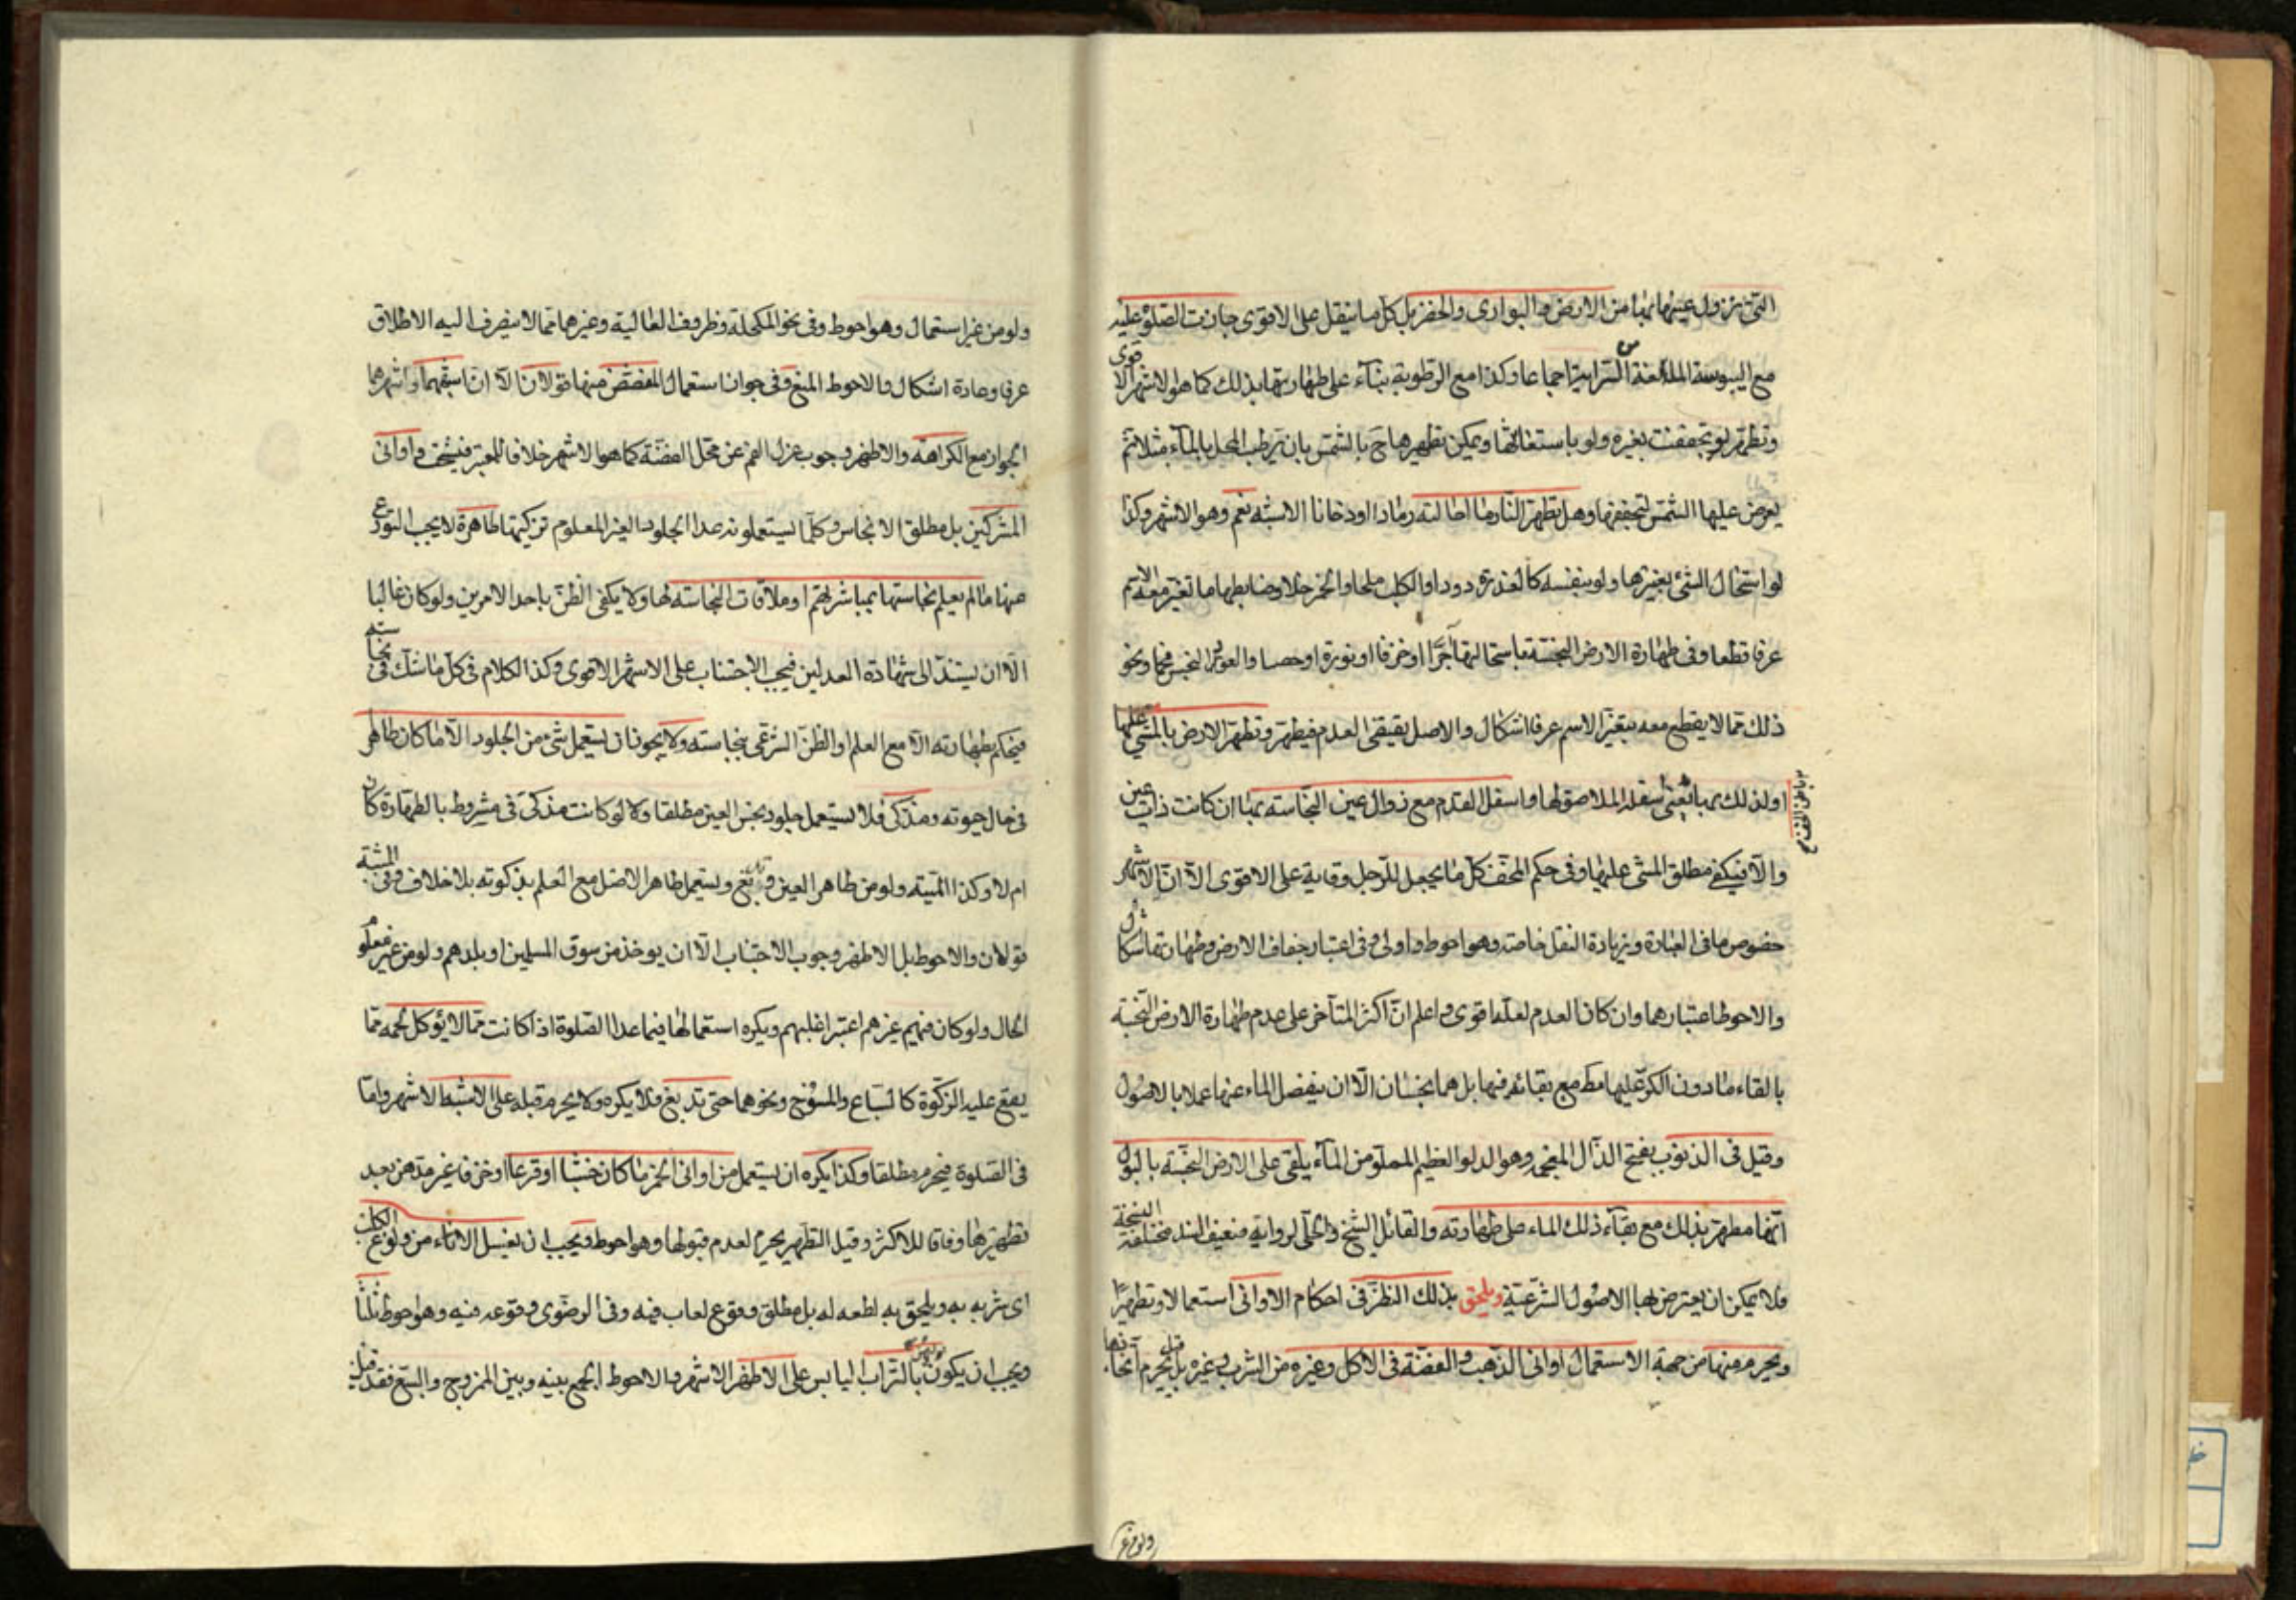 التي يزول عينها بها من الارض والبواري والحصر بل كل ما لا ينقل على الاقوى جازت الصلوة عليه
مع اليبوسة السراية اجماعا وكذا مع الرطوبة بناء على طهارتها بذلك كما هو الاشهر الاقوى
وتطهر لو تجففت بغيره ولو باستعانتها ويمكن تطهيرها ح بالشمس بان يرطب المحل بالماء مثلا ثم
يعرض عليها الشمس لتجففها وهل تطهر النار ما احالته رمادا او دخانا الاشبه نعم وهو الاشهر وكذا
لو استحال الشئ بغيرها ولو بنفسه كالعذرة دودا والكلب ملحا والخمر خلا وضابطها ما تغير معه الاسم
عرفا قطعا وفي طهارة الارض النجسة باستحالتها آجرا او خزفا او نورة او جصا والعود النجس فحما ونحو
ذلك مما لا يقطع معه بتغير الاسم عرفا اشكال والاصل يقتضي العدم فيطهر وتطهر الارض بالمشي عليها
او لذلك بها اسفله الملاصق لها واسفل القدم مع زوال عين النجاسة بها ان كانت ذات عين
باطن الخف
والا فيكفي مطلق المشي عليها وفي حكم الخف كل ما يجعل للرجل وقاية على الاقوى الا ان الاشهر
خصوص ما في العبارة وبزيادة النعل خاصة وهو احوط واولى وفي اعتبار جفاف الارض وطهارتها اشكال
والاحوط اعتبارهما وان كان العدم لعله اقوى واعلم ان اكثر المتأخر على عدم طهارة الارض النجسة
بالقاء ما دون الكر عليها مط مع بقائه فيها بل هما نجسان الا ان ينفصل الماء عنها عملا بالاصول
وقيل في الذنوب بفتح الذال المعجمه وهو الدلو العظيم المملو من الماء يلقى على الارض النجسة بالبول
انها مطهر بذلك مع بقاء ذلك الماء على طهارته والقائل الشيخ والحلي لرواية ضعيف السند مختلفة النسخة
فلا يمكن ان يعترض لها الاصول الشرعية ويلحق بذلك النظر في احكام الاواني استعمالا وتطهيرا
ويحرم منها من جهة الاستعمال اواني الذهب والفضة في الاكل وغيره من الشرب وغيره بل قيل يحرم اتخاذها
ولو من غير
ولو من غير استعمال وهو احوط وفي نحو المكحلة وظروف الغالية وغيرهما مما لا ينصرف اليه الاطلاق
عرفا وعادة اشكال والاحوط المنع وفي جواز استعمال المفضض منها قولان الا ان اشبههما واشهرهما
الجواز مع الكراهة والاظهر وجوب عزل الفم عن محل الفضة كما هو الاشهر خلافا للمعتبر فيستحب واواني
المشركين بل مطلق الانجاس وكلما يستعملونه عدا الجلود الغير المعلوم تزكيتها طاهرة لا يجب التورع
عنها ما لم يعلم نجاستها بمباشرتهم او ملاقات النجاسة لها ولا يكفي الظن باحد الامرين ولو كان غالبا
الا ان يستند الى شهادة العدلين فيجب الاجتناب على الاشهر الاقوى وكذا الكلام في كل ما شك في نجاسته
فيحكم بطهارته الا مع العلم او الظن الشرعي بنجاسته ولا يجوز ان يستعمل شئ من الجلود الا ما كان طاهرا
في حال حيوته ومذكى فلا يستعمل جلود نجس العين مطلقا ولا لو كانت مذكى في مشروط بالطهارة كان
ام لا وكذا الميته ولو من طاهر العين ويستعمل طاهر الاصل مع العلم بذكوته بلا خلاف وفي المشتبه
قولان والاحوط بل الاظهر وجوب الاجتناب الا ان يوخذ من سوق المسلمين او بلدهم ولو من غير معلوم
الحال ولو كان فيهم غيرهم اعتبر اغلبهم ويكره استعمالها فيما عدا الصلوة اذا كانت مما لا يؤكل لحمه مما
يقع عليه الزكوة كالسباع والمسوخ ونحوهما حتى تدبغ فلا يكره ولا يحرم قبله على الاشبه الاشهر واما
في الصلوة فيحرم مطلقا وكذا يكره ان يستعمل من اواني الخمر ما كان خشبا او قرعا او خزفا غير مدهن بعد
تطهيرها وفاقا للاكثر وقيل التطهر يحرم لعدم قبولها وهو احوط ويجب ان يغسل الاناء من ولوغ الكلب
اي شربه به ويلحق به لطعه له بل مطلق وقوع لعاب فيه وفي الرضوي وقوعه فيه وهو احوط ثلثا
ويجب ان يكون بالتراب اليابس على الاظهر الاشهر والاحوط الجمع بينه وبين الممزوج والسبع فقد قيل